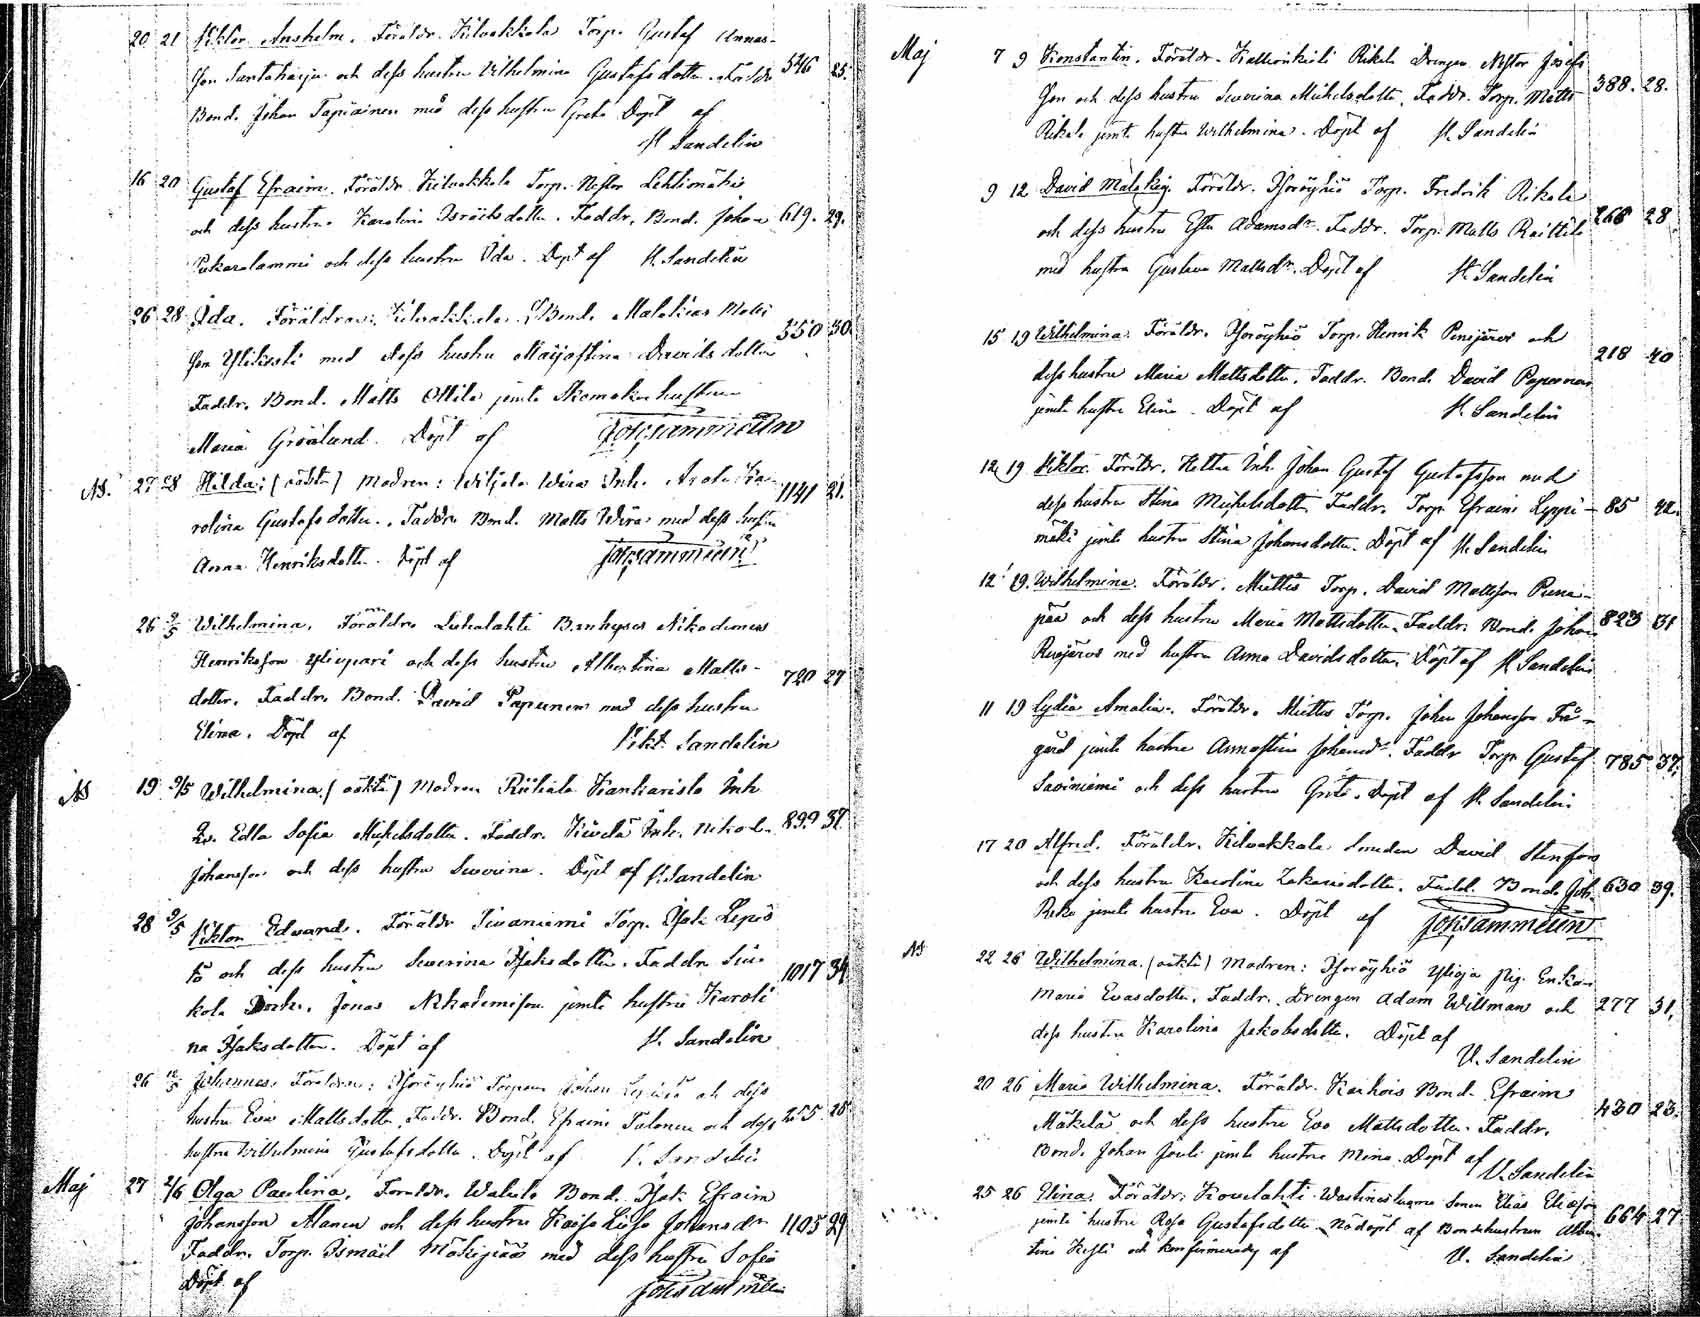 20 21 Viktor Anshelm. Föräldr. Kilvakkala Torp. Gustaf Annas-
son Santaharju och dess hustru Vilhelmina Gustafsdotter. Faddr 546 25.
Bond. Johan Tapiainen med dess hustru Greta Döpt af
V. Sandelin
16 20 Gustaf Efraim. Föräldr. Kilvakkala Torp. Nestor Lehtimäki
och dess hustru Karolina Isräelsdotter. Faddr. Bond. Johan 619. 29.
och dess hustru Ida. Döpt af V. Sandelin
26 28 Ida. Föräldrar: Kilvakkala Bond. Malakias Matts
son Ylikoski med dess hustru Majastina Davidsdotter 550 30.
Faddr. Bond. Matts Ottila jemte Skomakar hustrun
Maria Grönlund. Döpt af Joh. Sammelin
AB. 27 28 Hilda: (oäkta) Modren: Wiljala Wira Inh. Ka-
rolina Gustafsdotter. Faddr. Bond. Matts Wira med dess hustru 1141 21.
Anna Henriksdotter. Döpt af Joh. Sammelin
26 2/5 Wilhelmina. Föräldr. Luhalahti Backhyses Nikodemus
Henriksson Ylieppari och dess hustru Albertina Matts- 720 27
dotter. Faddr. Bond. David Papunen med dess hustru
Elina. Döpt af Vikt. Sandelin
AB 19 2/5 Wilhelmina. (oäkta) Modren Riitiala Kankaristo Inh.
Qv. Edla Sofia Mickelsdotter. Faddr. Kivelä Inh. Nikod. 899 37.
Johansson och dess hustru Severina. Döpt af V. Sandelin
28 3/5 Viktor Edvard. Föräldr Sivaniemi Torp. Isak Lepis
tö och dess hustru Severina Isaksdotter. Faddr 1017 34
kola Inh. Jonas Nikodemisson jemte hustru Karoli
na Isaksdotter. Döpt af V. Sandelin
26 12/5 Johannes. Föräldrar: Iso röyhiö Torparen Johan Lepistö och dess
hustru Eva Mattsdotter. Faddr. Bond. Efraim Talonen och dess 255. 28
hustru Wilhelmina Gustafsdotter. Döpt af V. Sandelin
Maj 27 2/6 Olga Paulina. Föräldr. Watula Bond. Isak Efraim
Johansson Alanen och dess hustru Kaisa Lisa Johansdr 1105 29
Faddr. Torp. Ismael Mäkipää med dess hustru Sofia
Döpt af Joh. Sammelin
Maj 7 9 Konstantin. Föräldr. Kallionkieli Rikala Drengen Nestor Josefs
son och dess hustru Severina Mickelsdotter. Faddr. Torp. Matts 388. 28.
Rikala jemte hustru Wilhelmina. Döpt af V. Sandelin
9 12 David Malakias. Föräldr. Iso röyhiö Torp. Fredrik Rikala
och dess hustru Ester Adamsdr. Faddr. Torp. Matts Raittila 266 28
med hustru Gustava Mattsdr. Döpt af V. Sandelin
15 19 Wilhelmina. Föräldr. Iso röyhiö Torp. Henrik Penijärvi och
dess hustru Maria Mattsdotter. Faddr. Bond. David Papunen 218 40
jemte hustru Elina. Döpt af V. Sandelin
12 19 Viktor. Föräldr. Inh. Johan Gustaf Gustafsson med
dess hustru Stina Mickelsdotter. Faddr. Torp. Efraim Leppi- 85 42.
mäki jemte hustru Stina Johansdotter. Döpt af V. Sandelin
12 19. Wilhelmina. Föräldr. Miettis Torp. David Mattsson
pää och dess hustru Maria Mattsdotter. Faddr. Bond. Johan 823 31
med hustru Anna Davidsdotter. Döpt af V. Sandelin
11 19 Lydia Amalia. Föräldr. Miettis Torp. Johan Johansson Fri-
gård jemte hustru Annastina Johansdr. Faddr Torp. Gustaf 785 37.
Saviniemi och dess hustru Greta. Döpt af V. Sandelin.
17 20 Alfred. Föräldr. Kilvakkala Smeden David Stenfors
och dess hustru Karolina Zakariasdotter. Faddr. Bond. Joh. 630 39.
Reko jemte hustru Eva. Döpt af Joh. Sammelin
AB 22 26 Wilhelmina. (oäkta) Modren: Iso röyhiö Ylioja Pig. Enkan
Maria Evasdotter. Faddr. Drengen Adam Willman och 277 31.
dess hustru Karolina Jakobsdotter. Döpt af
V. Sandelin
20 26 Maria Wilhelmina. Föräldr. Karhois Bond. Efraim
Mäkelä och dess hustru Eva Mattsdotter. Faddr. 430 23.
Bond. Johan Jouti jemte hustru Mina. Döpt af
V. Sandelin
25 26 Elina. Föräldr: Kovelahti Sonen Elias Eliasson
jemte hustru Rosa Gustafsdotter. Nöddöpt af Bondehustrun Alber- 664 27.
tina Kesti och konfirmerad af V. Sandelin